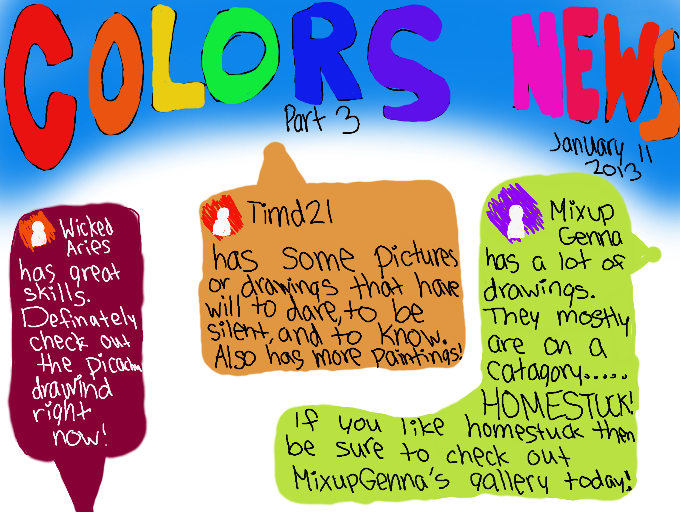 COLORS NEWS
Part 3
January 11
2013
Wicked
Aries
has great
skills.
Definately
check out
the Picachu
drawind
right
now!
Timd21
has some pictures
or drawings that have
will to dare, to be
silent, and to know.
Also has more paintings!
Mixup
Genna
has a lot of
drawings.
They mostly
are on a
catagory.....
HOMESTUCK!
If you like homestuck then
be sure to check out
MixupGenna's gallery today!